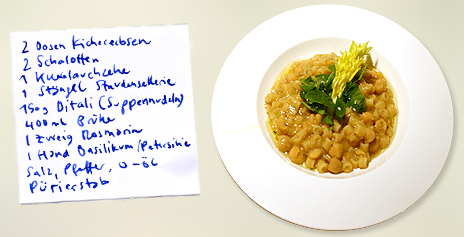 2 Dosen Kichererbsen
2 Schalotten
1 Knoblauchzehe
1 Stängel Staudensellerie
150g Ditali (Suppennudeln)
400 ml Brühe
1 Zweig Rosmarin
1 Hand Basilikum/Petersilie
Salz, Pfeffer, O-Öl
Pürierstab